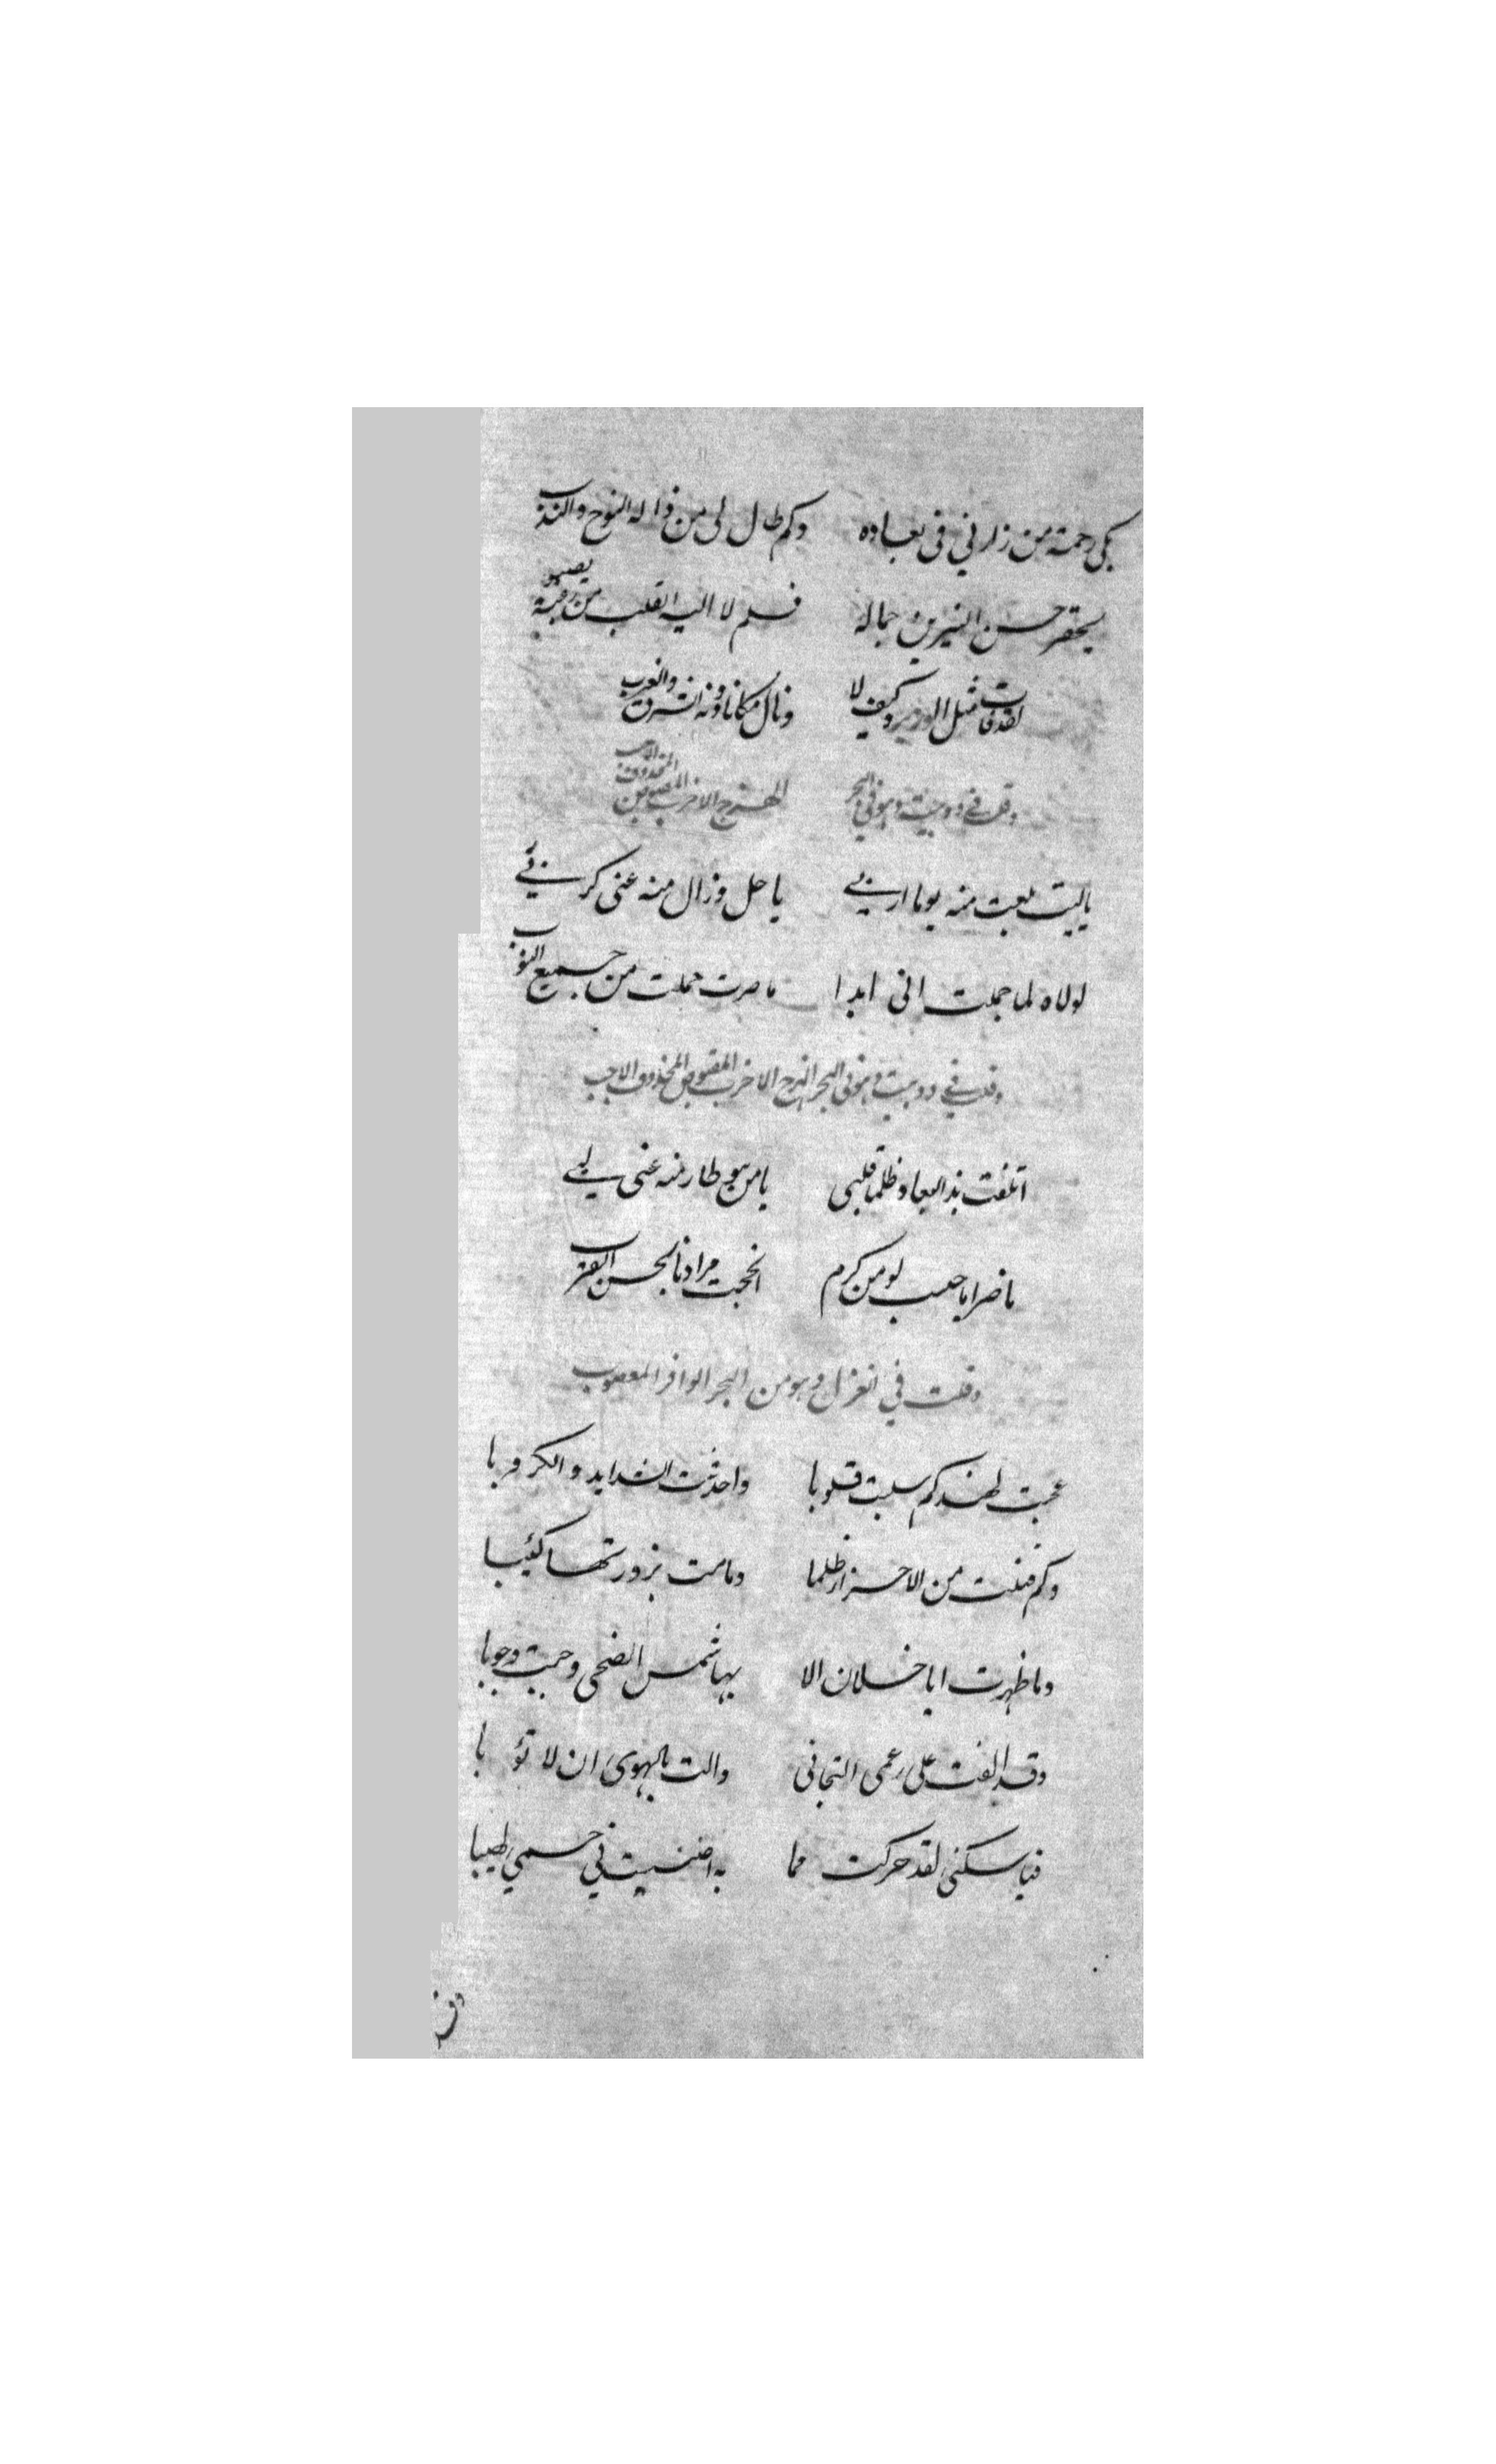 بكى رحمة من زارني في بعاده وكم طال لى من ذا له النوح والندب
يحقر حسن النيرين جماله فلم لا اليه القلب من رقبة يصبو
لقد فات مثل الوزير وكيف لا ونال مكانا دونه الشرق والغرب
وقلت في دوبيت وهو في البحر الهزج الاخرب المقبوض المحذوف الاجب
ياليت بلغت منه يوما اربي يا حل وزال منه عنى كربي
لولاه لما حملت انى ابدا ما صرت حملت من جميع النوب
وقلت في دوبيت وهو في البحر الهزج الاخرب المقبوض المحذوف الاجب
اتلفت بذا البعاد ظلما قلبي يا من هو طار منه عنى لبي
ما ضر ايا حبيب لو من كرم انجحت مرادنا بحسن القرب
وقلت في الغزل وهو من البحر الوافر المعصوب
عجبت لهند كم سلبت قلوبا واحدثت الشدايد والكروبا
وكم قتلت من الاحرار ظلما ومامت بزورتها كئيبا
وما ظهرت ايا خلان الا بها شمس الضحى وجبت وجوبا
وقد الفت على رغمى التجافى والت بالهوى ان لا تؤبا
فيا سكنى لقد حركت مما به اضنيت في جسمي لهيبا